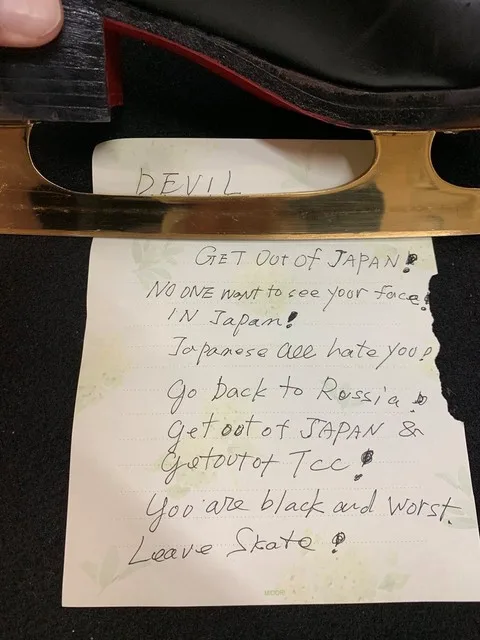 DEVIL
GET Out of JAPAN!
NO ONE want to see your face!
IN Japan!
Japanese all hate you!
Go back to Russia!
Get out of JAPAN &
Get out of Tcc!
You are black and worst.
Leave Skate!